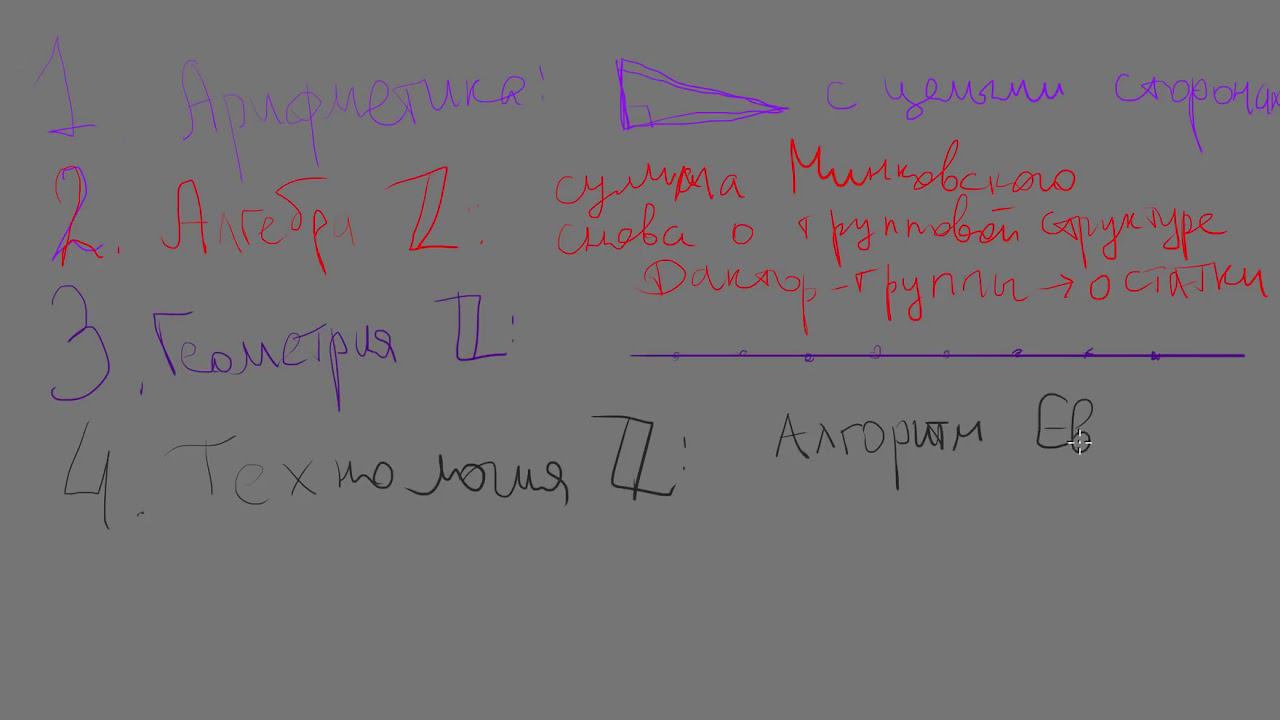 1. Арифметика: с целыми сторонах
2. Алгебра ℤ: сумма Минковского
снова о групповой структуре
Фактор-группы → остатки
3. Геометрия ℤ:
4. Технология ℤ: Алгоритм Ев